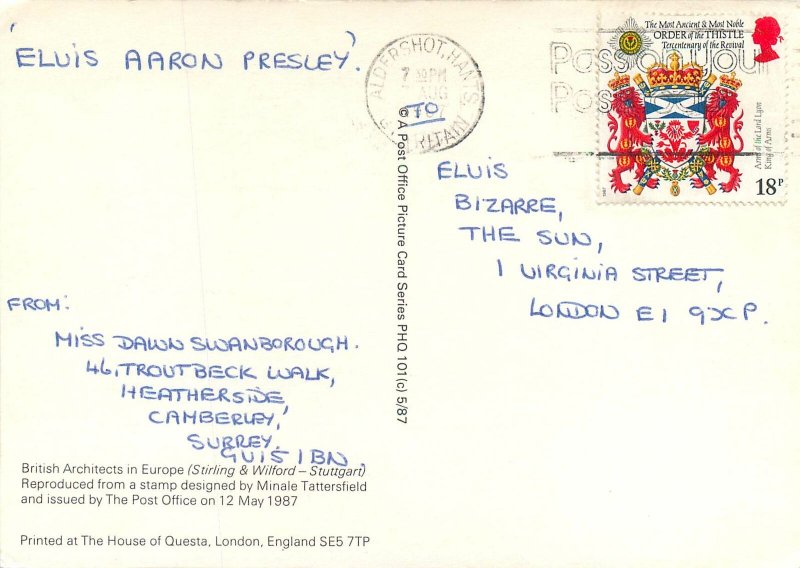 'ELVIS AARON PRESLEY'.
ALDERSHOT, HANTS
7 30PM
AUG
BRITAIN
TO
Pass on your
Post
The Most Ancient & Most Noble
ORDER of the THISTLE
Tercentenary of the Revival
Arms of the Lord Lyon
King of Arms
18P
ELVIS
BIZARRE,
THE SUN,
1 VIRGINIA STREET,
LONDON E1 9XP.
© A Post Office Picture Card Series PHQ 101(c) 5/87
FROM:
MISS DAWN SWANBOROUGH.
46, TROUTBECK WALK,
HEATHERSIDE,
CAMBERLEY,
SURREY.
GU15 1BN.
British Architects in Europe (Stirling & Wilford – Stuttgart)
Reproduced from a stamp designed by Minale Tattersfield
and issued by The Post Office on 12 May 1987
Printed at The House of Questa, London, England SE5 7TP